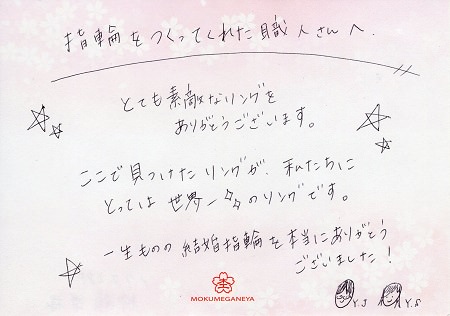 指輪をつくってくれた職人さんへ.
とても素敵なリングを
ありがとうございます。
ここで見つけたリングが、私たちに
とっては世界一のリングです。
一生ものの結婚指輪を本当にありがとう
ございました!
Y.S Y.S
MOKUMEGANEYA